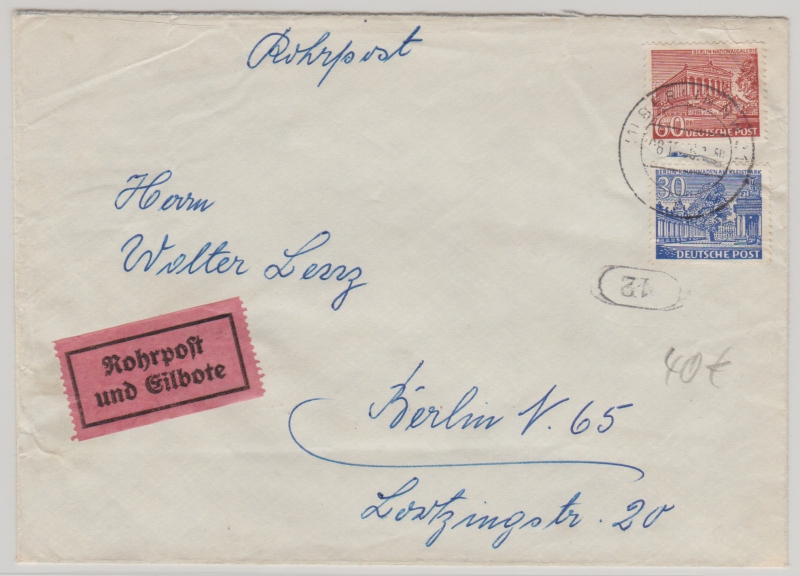 Rohrpost
BERLIN-NATIONALGALERIE
60
DEUTSCHE POST
30
DEUTSCHE POST
Herrn
Walter Lenz
12
Rohrpost
und Eilbote
40€
Berlin N. 65
Lortzingstr. 20